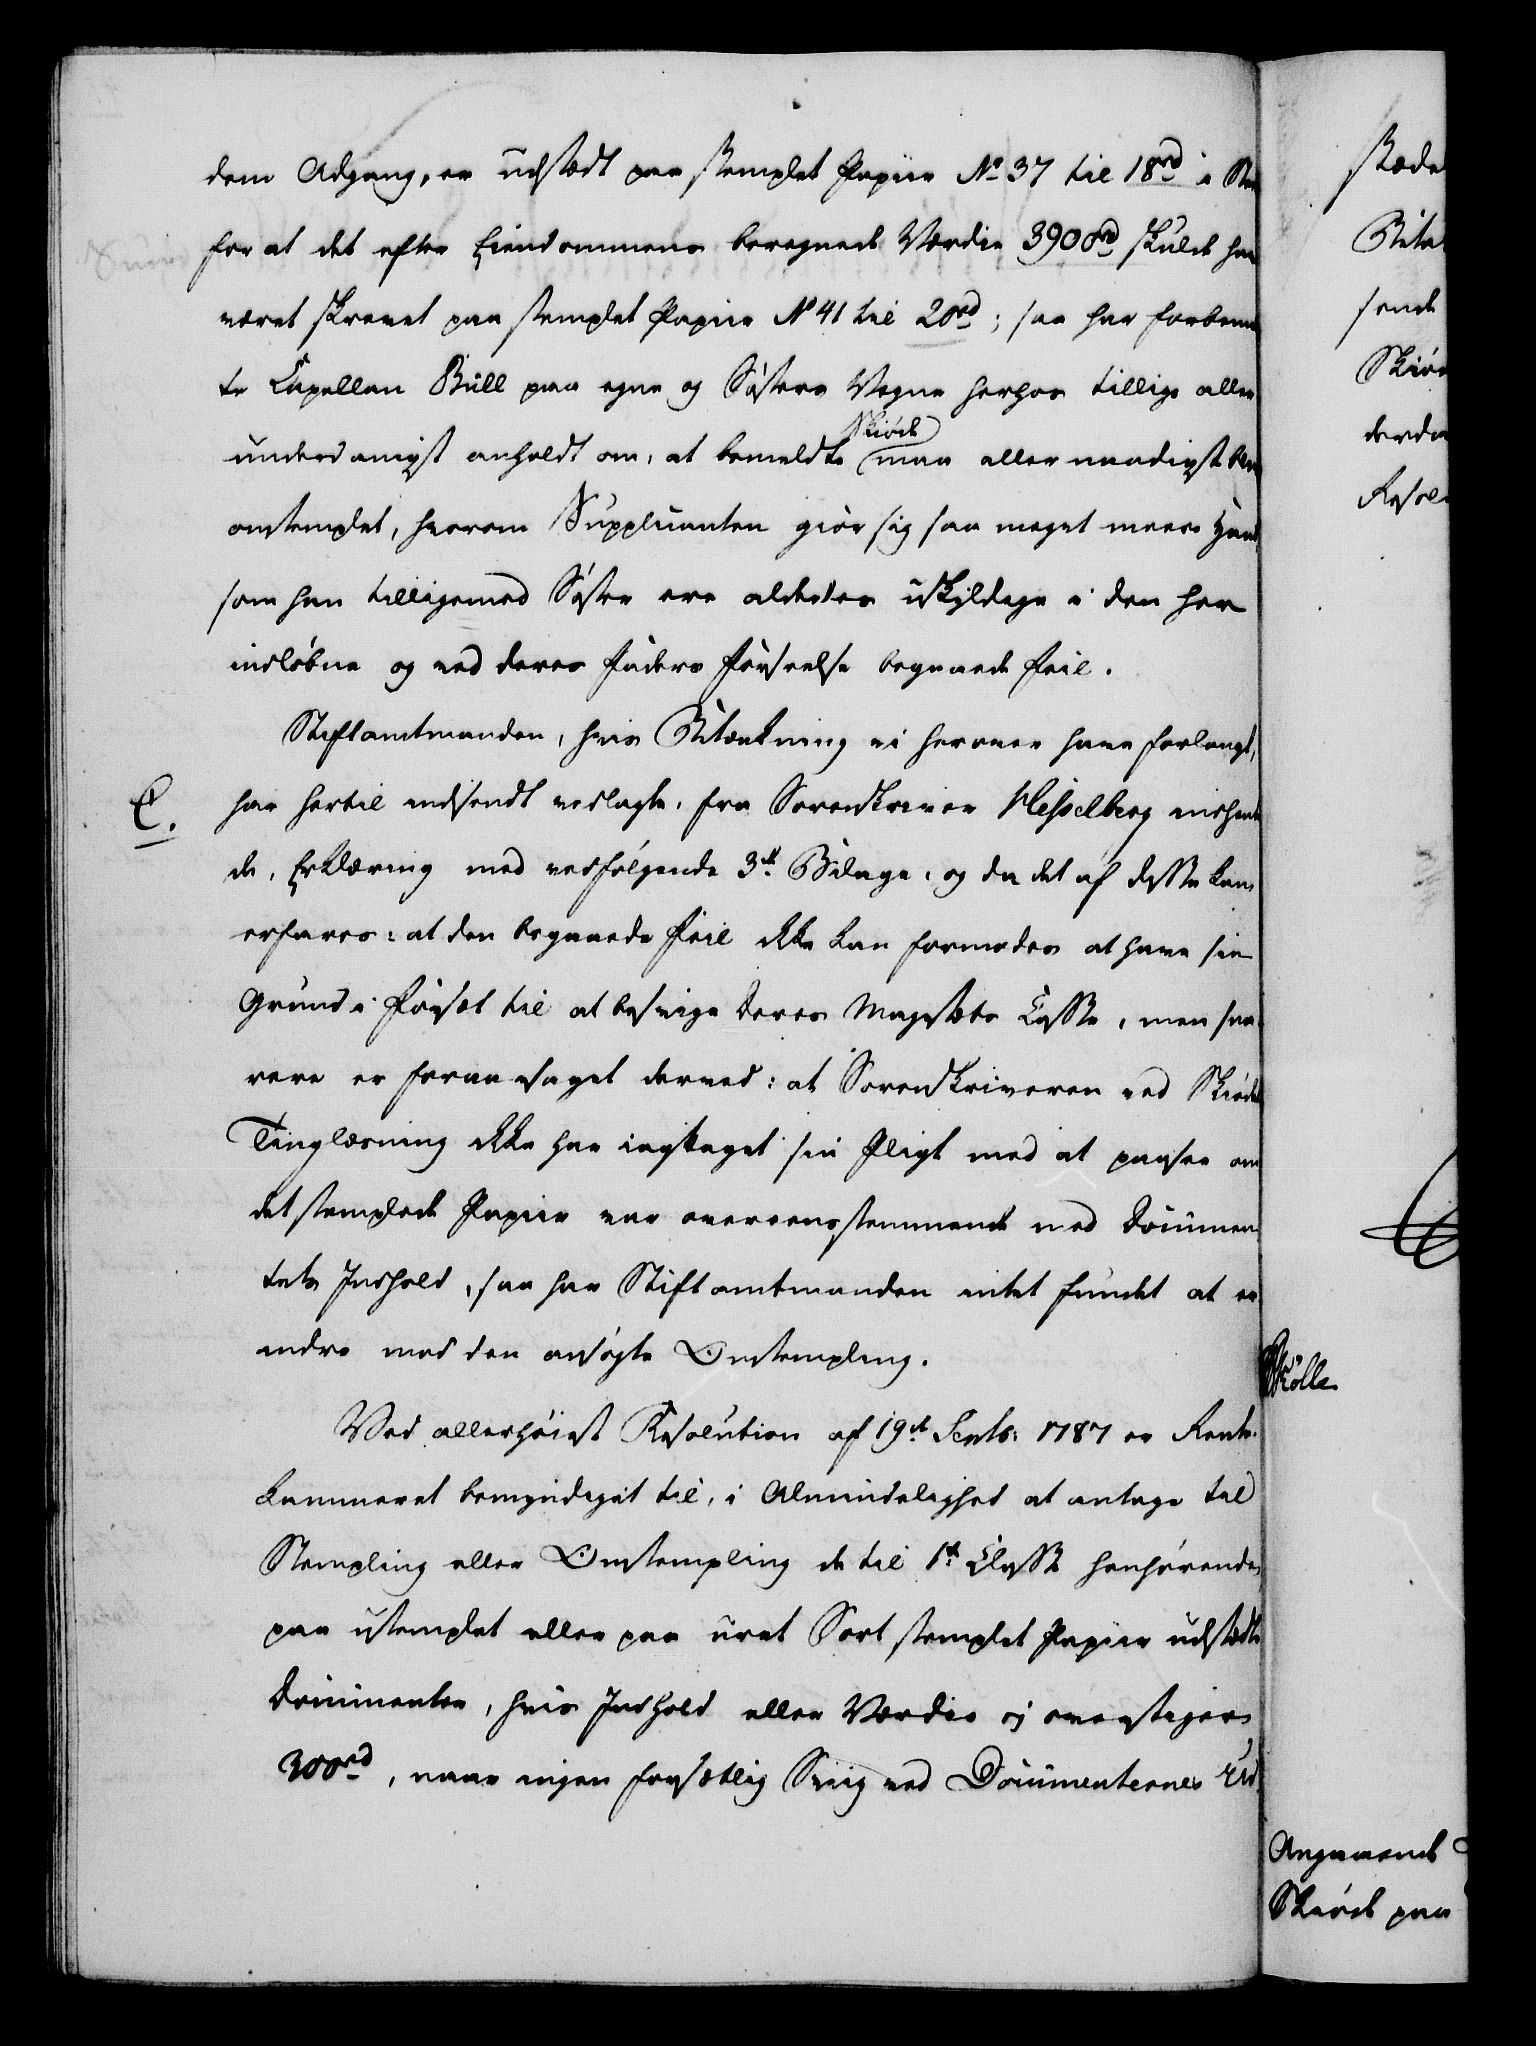 dem Adgang, er udstædt paa stemplet Papiir No 37 til 18rd i Ste
for at det efter Eiendommens beregnede Værdie 3900rd skulde ha
været skrevet paa stemplet Papiir No 41 til 20rd; saa har forbem
te Capellan Bull paa egne og Søsters Vegne herhos tillige aller
Skiøde
underdanigst anholdt om, at bemeldte maa allernaadigst bli
omstemplet, hvorom Supplicanten giør sig saa meget meere Haab
som han tilligemed Søster ere aldeeles uskyldige i den her
indløbne og ved deres Faders Forseelse begaaede Feil.
Stiftamtmanden, hvis Betænkning vi herover have forlangt,
E.
har hertil indsendt vedlagte, fra Sorenskriver Hesselberg indhent
de, Erklæring med vedfølgende 3de Bilage, og da det af disse kan
erfares: at den begaaede Feil ikke kan formodes at have sin
Grund i Forsæt til at besvige Deres Majestæts Casse, men sna
rere er foraarsaget derved: at Sorenskriveren ved Skiødets
Tinglæsning ikke har iagttaget sin Pligt med at paasee om
det stemplede Papiir var overeensstemmende med Documen
tets Indhold, saa har Stiftamtmanden intet fundet at er
indre mod den ansøgte Omstempling.
Ved allerhøiest Resolution af 19de Septb: 1787 er Rente-
kammeret bemyndiget til, i Almindelighed at antage til
Stempling eller Omstempling de til 1ste Classe henhørende,
paa ustemplet eller paa uret Sort stemplet Papiir udstædte
Documenter, hvis Indhold eller Værdie ej overstiger
300rd, naar ingen forsætlig Sviig ved Documenternes Ud
skæde
Betæ
sende
Skiø
derda
Resol
Mølle
Angaaende
Skiøde paa